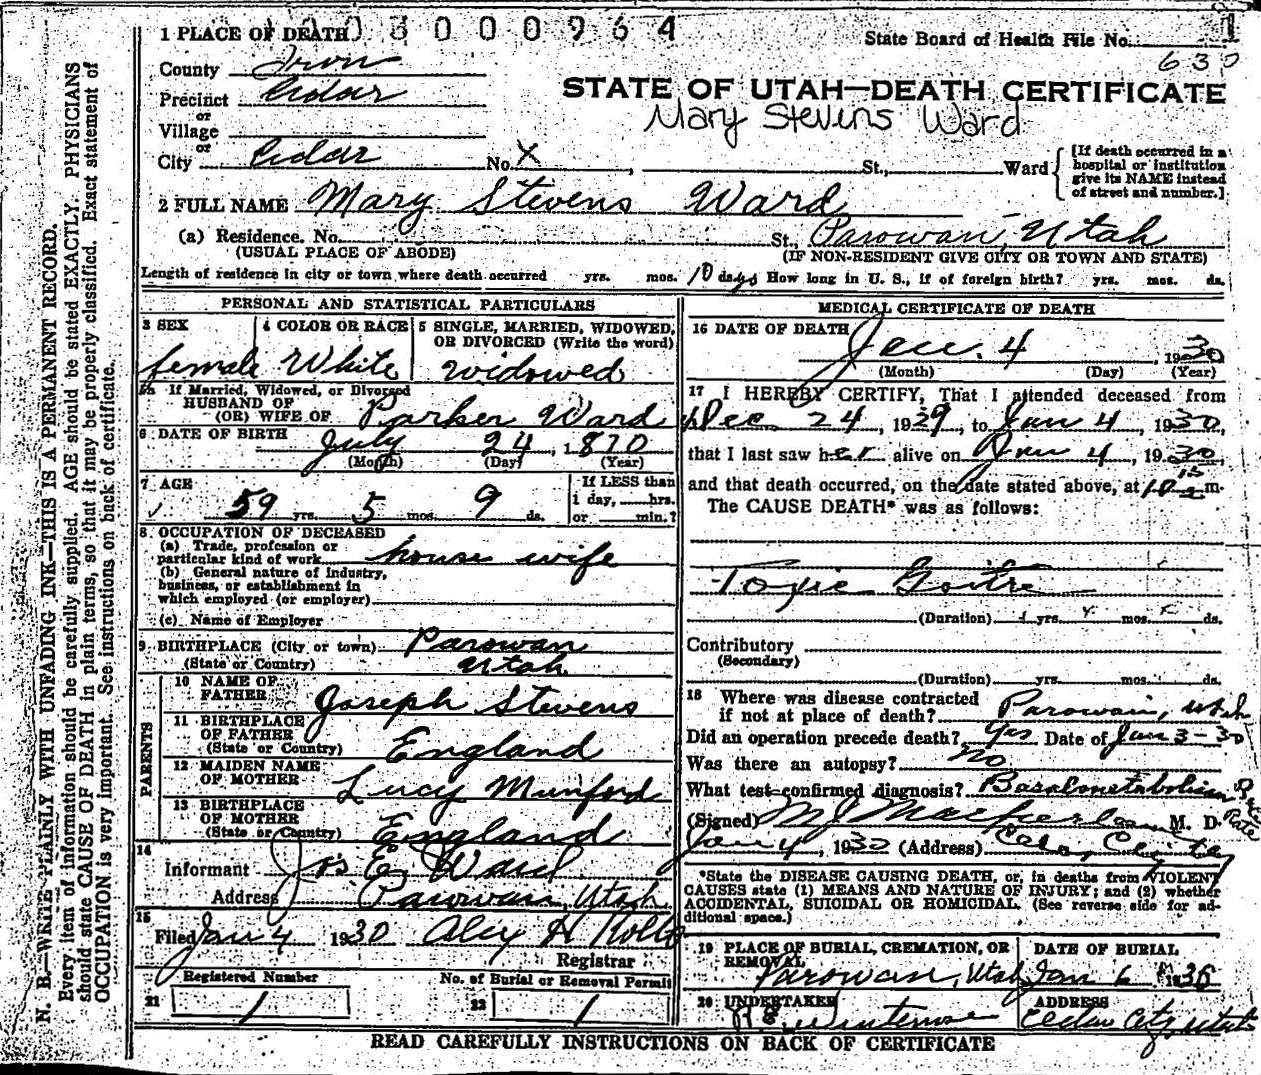 1 PLACE OF DEATH 003000964
State Board of Health File No. 1
630
County Iron
STATE OF UTAH—DEATH CERTIFICATE
Precinct Cedar
or
Mary Stevens Ward
Village
or
City Cedar No. X St., Ward
[If death occurred in a
hospital or institution
give its NAME instead
of street and number.]
2 FULL NAME Mary Stevens Ward
(a) Residence. No. St., Parowan, Utah
(USUAL PLACE OF ABODE) (IF NON-RESIDENT GIVE CITY OR TOWN AND STATE)
Length of residence in city or town where death occurred yrs. mos. 10 days How long in U. S., if of foreign birth? yrs. mos. ds.
PERSONAL AND STATISTICAL PARTICULARS
3 SEX 4 COLOR OR RACE 5 SINGLE, MARRIED, WIDOWED,
OR DIVORCED (Write the word)
female White widowed
5a If Married, Widowed, or Divorced
HUSBAND OF
(OR) WIFE OF Parker Ward
6 DATE OF BIRTH July 24, 1870
(Month) (Day) (Year)
7 AGE If LESS than
1 day, hrs.
59 yrs. 5 mos. 9 ds. or min.?
8 OCCUPATION OF DECEASED
(a) Trade, profession or
particular kind of work house wife
(b) General nature of industry,
business, or establishment in
which employed (or employer)
(c) Name of Employer
9 BIRTHPLACE (City or town) Parowan
(State or Country) Utah
PARENTS
10 NAME OF
FATHER Joseph Stevens
11 BIRTHPLACE
OF FATHER
(State or Country) England
12 MAIDEN NAME
OF MOTHER Lucy Munford
13 BIRTHPLACE
OF MOTHER
(State or Country) England
14
Informant Jos E. Ward
Address Parowan, Utah
15
Filed Jan 4 1930 Alex H Rollo
Registrar
Registered Number No. of Burial or Removal Permit
21 1 22 1
MEDICAL CERTIFICATE OF DEATH
16 DATE OF DEATH
Jan. 4, 1930
(Month) (Day) (Year)
17 I HEREBY CERTIFY, That I attended deceased from
Dec 24, 1929, to Jan 4, 1930,
that I last saw her alive on Jan 4, 1930
and that death occurred, on the date stated above, at 10 15 m.
The CAUSE DEATH* was as follows:
Toxic Goitre
(Duration) yrs. mos. ds.
Contributory
(Secondary)
(Duration) yrs. mos. ds.
18 Where was disease contracted
if not at place of death? Parowan, Utah
Did an operation precede death? Yes Date of Jan 3-30
Was there an autopsy? No
What test confirmed diagnosis? Basalmetabolism Rate
Rate
(Signed) M J Macfarlane M. D.
Jan 4, 1930 (Address) Cedar City
*State the DISEASE CAUSING DEATH, or, in deaths from VIOLENT
CAUSES state (1) MEANS AND NATURE OF INJURY; and (2) whether
ACCIDENTAL, SUICIDAL OR HOMICIDAL. (See reverse side for ad-
ditional space.)
19 PLACE OF BURIAL, CREMATION, OR
REMOVAL DATE OF BURIAL
Parowan, Utah Jan 6
20 UNDERTAKER ADDRESS
Cedar City, Utah
READ CAREFULLY INSTRUCTIONS ON BACK OF CERTIFICATE
N. B.—WRITE PLAINLY WITH UNFADING INK—THIS IS A PERMANENT RECORD.
Every item of information should be carefully supplied. AGE should be stated EXACTLY. PHYSICIANS
should state CAUSE OF DEATH in plain terms, so that it may be properly classified. Exact statement of
OCCUPATION is very important. See instructions on back of certificate.